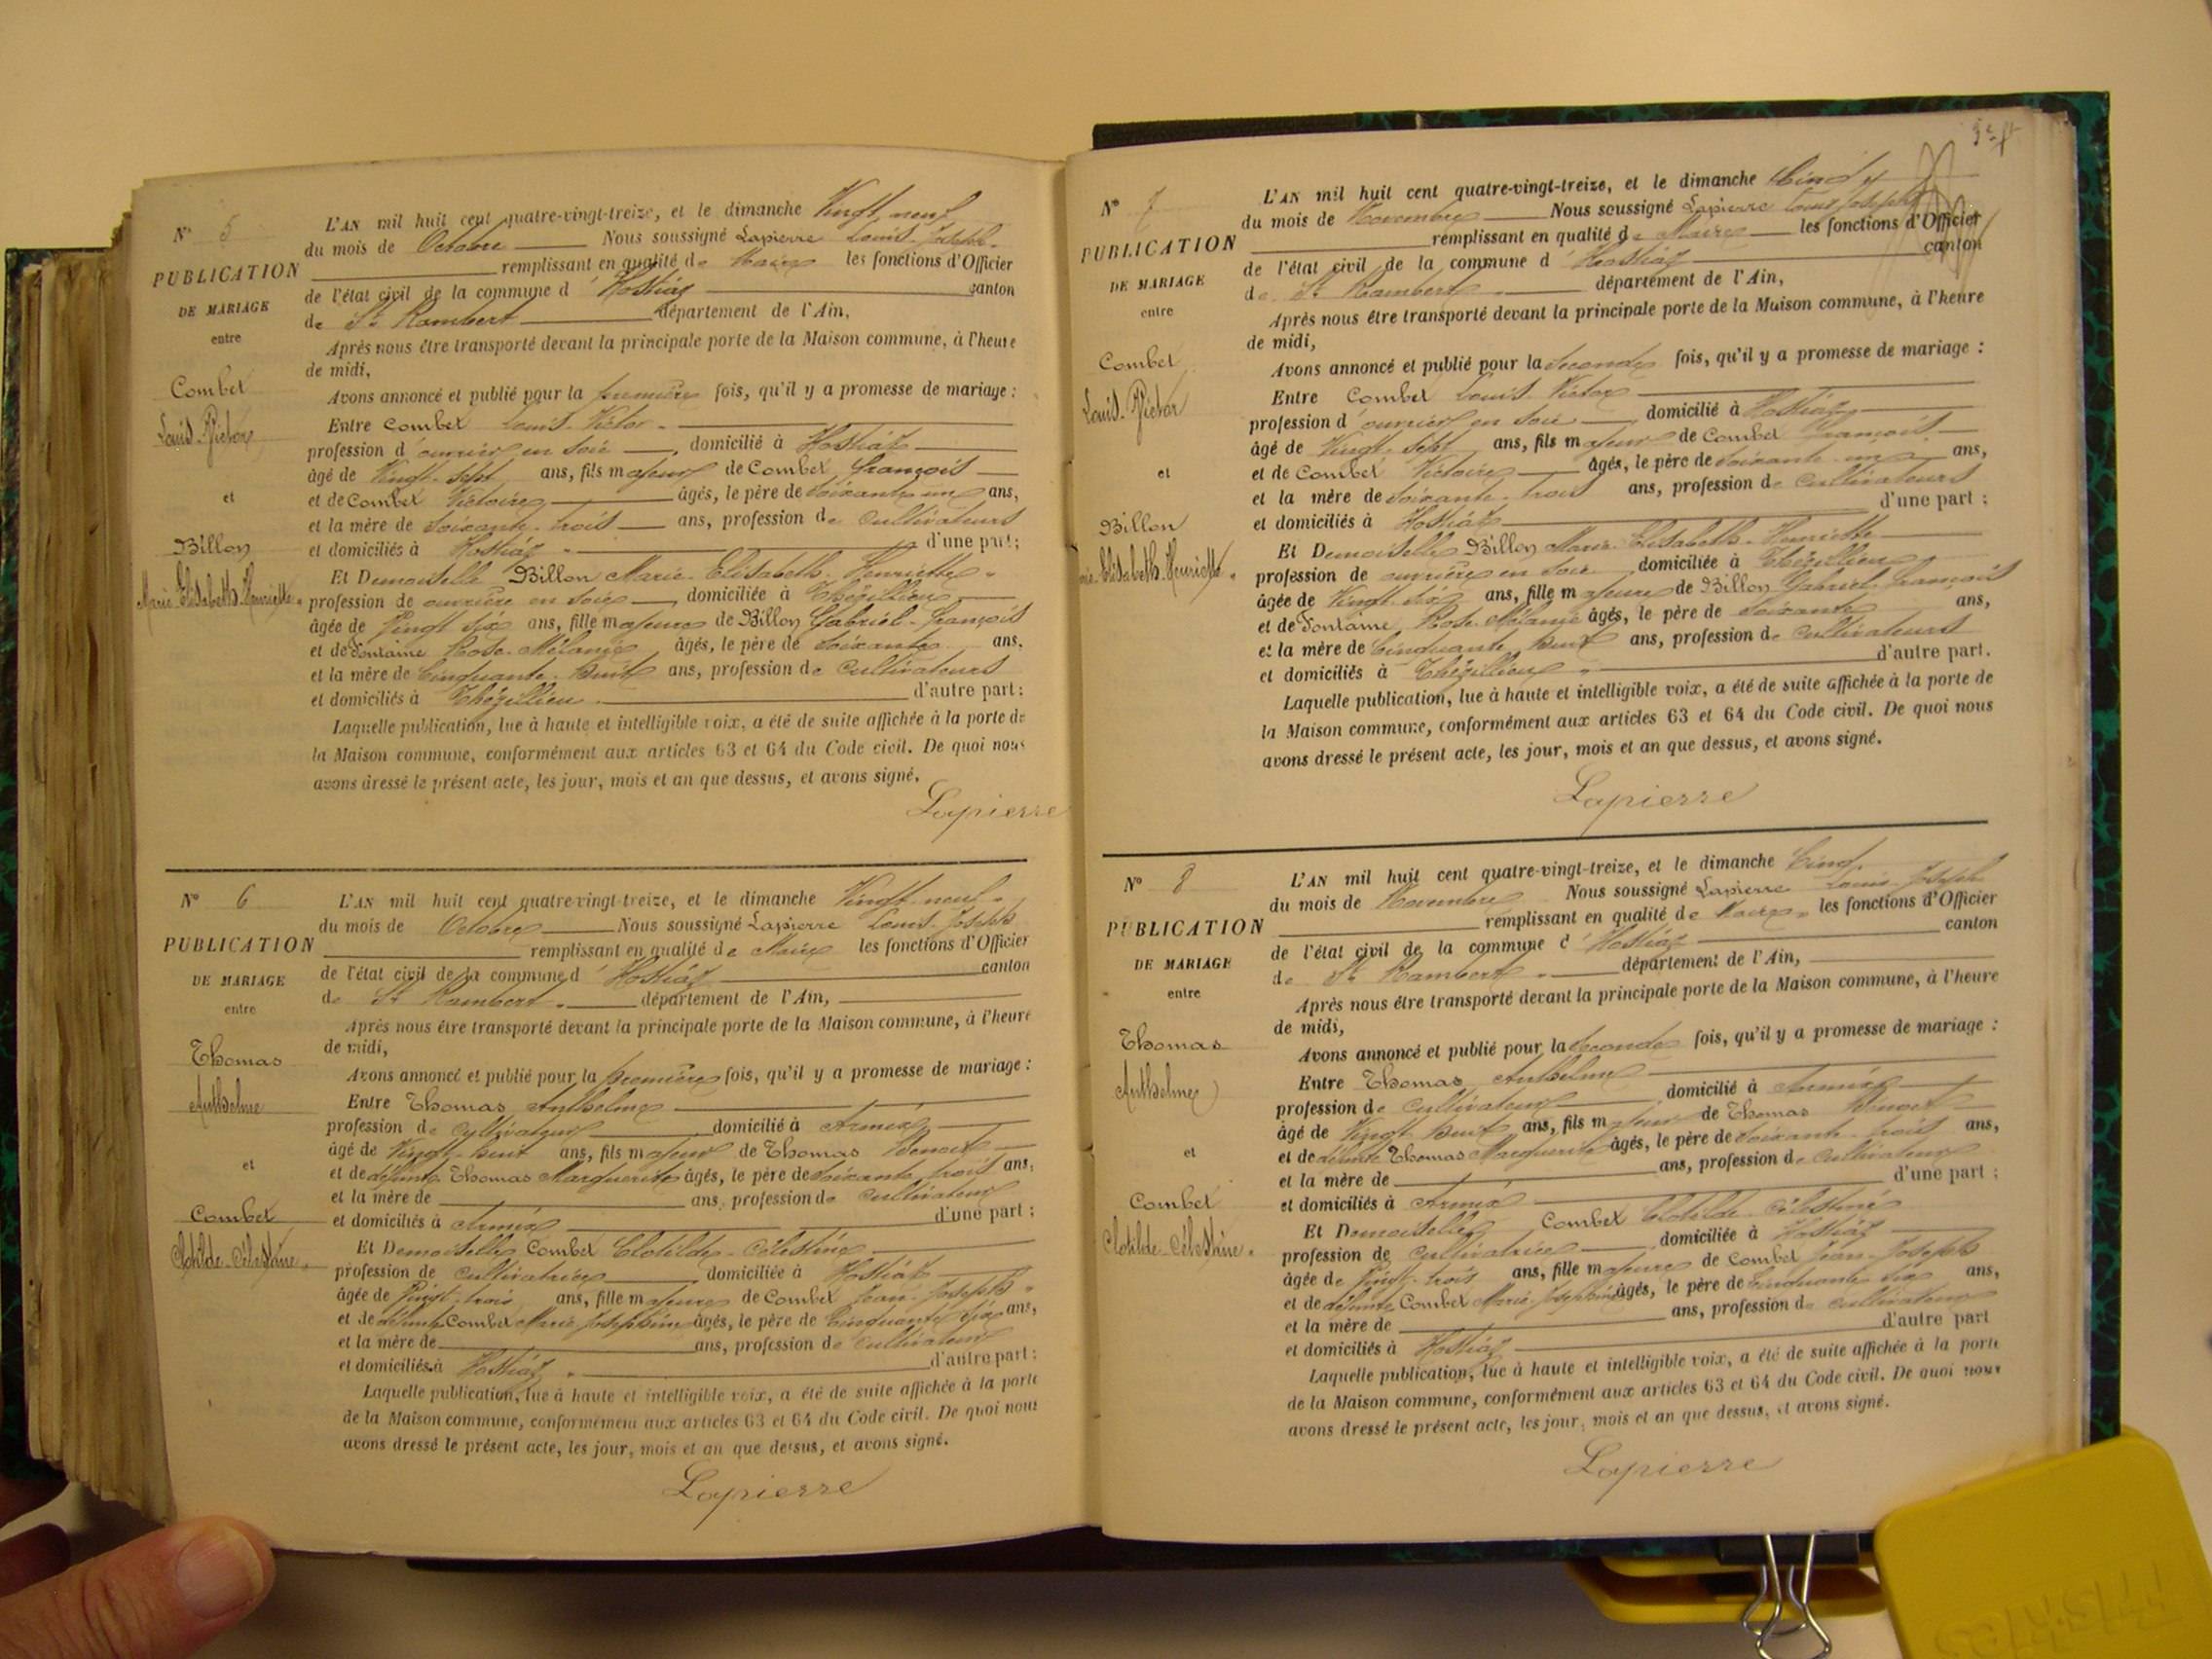 N° 5
PUBLICATION
DE MARIAGE
entre
Combet
Louis-Victor
et
Billon
Marie Elisabeth Henriette
L'AN mil huit cent quatre-vingt-treize, et le dimanche Vingt neuf
du mois de Octobre Nous soussigné Lapierre Louis-Joseph
remplissant en qualité de Maire les fonctions d'Officier
de l'état civil de la commune d'Hostiaz canton
de St Rambert département de l'Ain,
Après nous être transporté devant la principale porte de la Maison commune, à l'heure
de midi,
Avons annoncé et publié pour la première fois, qu'il y a promesse de mariage :
Entre Combet Louis-Victor
profession d'ouvrier en soie domicilié à Hostiaz
âgé de Vingt-sept ans, fils majeur de Combet François
et de Combet Victoire âgés, le père de soixante-un ans,
et la mère de soixante-trois ans, profession de cultivateurs
et domiciliés à Hostiaz d'une part;
Et Demoiselle Billon Marie-Elisabeth-Henriette
profession de ouvrière en soie domiciliée à Thézillieu
âgée de Vingt six ans, fille majeure de Billon Gabriel-François
et de Fontaine Rose-Mélanie âgés, le père de soixante ans,
et la mère de Cinquante-huit ans, profession de cultivateurs
et domiciliés à Thézillieu d'autre part;
Laquelle publication, lue à haute et intelligible voix, a été de suite affichée à la porte de
la Maison commune, conformément aux articles 63 et 64 du Code civil. De quoi nous
avons dressé le présent acte, les jour, mois et an que dessus, et avons signé.
Lapierre
N° 6
PUBLICATION
DE MARIAGE
entre
Thomas
Anthelme
et
Combet
Clotilde-Célestine
L'AN mil huit cent quatre-vingt-treize, et le dimanche Vingt-neuf
du mois de Octobre Nous soussigné Lapierre Louis-Joseph
remplissant en qualité de Maire les fonctions d'Officier
de l'état civil de la commune d'Hostiaz canton
de St Rambert département de l'Ain,
Après nous être transporté devant la principale porte de la Maison commune, à l'heure
de midi,
Avons annoncé et publié pour la première fois, qu'il y a promesse de mariage :
Entre Thomas Anthelme
profession de cultivateur domicilié à Armix
âgé de Vingt-huit ans, fils majeur de Thomas Benoit
et de défunte Thomas Marguerite âgés, le père de soixante trois ans,
et la mère de ans, profession de cultivateur
et domiciliés à Armix d'une part;
Et Demoiselle Combet Clotilde-Célestine
profession de cultivatrice domiciliée à Hostiaz
âgée de Vingt-trois ans, fille majeure de Combet Jean-Joseph
et de défunte Combet Marie Joséphine âgés, le père de Cinquante six ans,
et la mère de ans, profession de cultivateur
et domiciliés à Hostiaz d'autre part;
Laquelle publication, lue à haute et intelligible voix, a été de suite affichée à la porte
de la Maison commune, conformément aux articles 63 et 64 du Code civil. De quoi nous
avons dressé le présent acte, les jour, mois et an que dessus, et avons signé.
Lapierre
N° 7
PUBLICATION
DE MARIAGE
entre
Combet
Louis-Victor
et
Billon
Elisabeth-Henriette
L'AN mil huit cent quatre-vingt-treize, et le dimanche Cinq
du mois de Novembre Nous soussigné Lapierre Louis Joseph
remplissant en qualité de Maire les fonctions d'Officier
de l'état civil de la commune d'Hostiaz canton
de St Rambert département de l'Ain,
Après nous être transporté devant la principale porte de la Maison commune, à l'heure
de midi,
Avons annoncé et publié pour la seconde fois, qu'il y a promesse de mariage :
Entre Combet Louis-Victor
profession d'ouvrier en soie domicilié à Hostiaz
âgé de Vingt-sept ans, fils majeur de Combet François
et de Combet Victoire âgés, le père de soixante-un ans,
et la mère de soixante-trois ans, profession de cultivateurs
et domiciliés à Hostiaz d'une part;
Et Demoiselle Billon Marie-Elisabeth-Henriette
profession de ouvrière en soie domiciliée à Thézillieu
âgée de Vingt-six ans, fille majeure de Billon Gabriel-François
et de Fontaine Rose-Mélanie âgés, le père de soixante ans,
et la mère de Cinquante huit ans, profession de cultivateurs
et domiciliés à Thézillieu d'autre part.
Laquelle publication, lue à haute et intelligible voix, a été de suite affichée à la porte de
la Maison commune, conformément aux articles 63 et 64 du Code civil. De quoi nous
avons dressé le présent acte, les jour, mois et an que dessus, et avons signé.
Lapierre
N° 8
PUBLICATION
DE MARIAGE
entre
Thomas
Anthelme
et
Combet
Clotilde-Célestine
L'AN mil huit cent quatre-vingt-treize, et le dimanche Cinq
du mois de Novembre Nous soussigné Lapierre Louis-Joseph
remplissant en qualité de Maire les fonctions d'Officier
de l'état civil de la commune d'Hostiaz canton
de St Rambert département de l'Ain,
Après nous être transporté devant la principale porte de la Maison commune, à l'heure
de midi,
Avons annoncé et publié pour la seconde fois, qu'il y a promesse de mariage :
Entre Thomas Anthelme
profession de cultivateur domicilié à Armix
âgé de Vingt-huit ans, fils majeur de Thomas Benoit
et de défunte Thomas Marguerite âgés, le père de soixante-trois ans,
et la mère de ans, profession de cultivateur
et domiciliés à Armix d'une part;
Et Demoiselle Combet Clotilde-Célestine
profession de cultivatrice domiciliée à Hostiaz
âgée de Vingt-trois ans, fille majeure de Combet Jean-Joseph
et de défunte Combet Marie-Joséphine âgés, le père de Cinquante six ans,
et la mère de ans, profession de cultivateur
et domiciliés à Hostiaz d'autre part
Laquelle publication, lue à haute et intelligible voix, a été de suite affichée à la porte
de la Maison commune, conformément aux articles 63 et 64 du Code civil. De quoi nous
avons dressé le présent acte, les jour, mois et an que dessus, et avons signé.
Lapierre